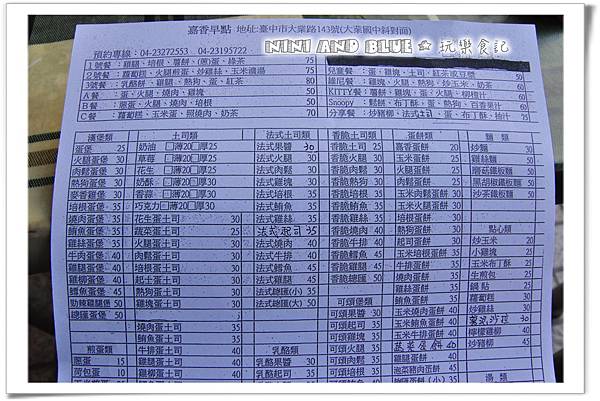 嘉香早點 地址:臺中市大業路143號(大業國中斜對面)
NINI AND BLUE ☆ 玩樂食記
預約專線:04-23272553 04-23195722
1號餐:雞腿、培根、薯餅、(煎)蛋、綠茶 75
2號餐:蘿蔔糕、火腿煎蛋、炒雞絲、玉米濃湯 75
3號餐:乳酪餅、雞腿、熱狗、蛋、紅茶 80
A 餐:蛋、火腿、燒肉、雞塊 50
B 餐:蔥蛋、火腿、燒肉、培根 50
C 餐:蘿蔔糕、玉米蛋、照燒肉、奶茶 70
兒童餐:蛋、雞塊、土司、紅茶或豆漿 50
維尼餐:雞塊、薯餅、熱狗、炒玉米、奶茶 60
KITTY餐:薯餅、雞塊、蛋、火腿、柳橙汁
Snoopy:鬆餅、布丁酥、蛋、熱狗、百香果汁 60
漢堡類
蛋堡 25
火腿蛋堡 30
肉鬆蛋堡 30
熱狗蛋堡 30
麥香蛋堡 30
培根蛋堡 30
燒肉蛋堡 35
鮪魚蛋堡 35
雞絲蛋堡 35
牛肉蛋堡 40
雞腿蛋堡 40
雞柳蛋堡 40
鱈魚蛋堡 45
勁辣雞腿堡 50
總匯蛋堡 50
煎蛋類
蔥蛋 15
荷包蛋 10
土司類
奶油 □薄20□厚25
草莓 □薄20□厚25
花生 □薄20□厚25
奶酥 □薄20□厚25
香蒜 □薄20□厚25
巧克力□薄20□厚25
花生蛋土司 30
蔬菜蛋土司 25
火腿蛋土司 30
肉鬆蛋土司 30
培根蛋土司 30
起士蛋土司 30
熱狗蛋土司 30
雞塊蛋土司 30
燒肉蛋土司 35
鮪魚蛋土司 35
牛排蛋土司 40
雞腿蛋土司 40
雞柳蛋土司 40
法式土司類
法式果醬 30
法式火腿 35
法式肉鬆 35
法式雞塊 35
法式培根 35
法式鮪魚 35
法式雞絲 35
法式起司 35
法式燒肉 40
法式牛排 45
法式鱈魚 45
法式雞腿 45
法式總匯(小) 35
法式總匯(大) 50
乳酪類
乳酪果醬 30
乳酪火腿 35
香脆土司類
香脆土司 30
香脆火腿 30
香脆肉鬆 30
香脆熱狗 30
香脆培根 30
香脆鮪魚 35
香脆雞絲 35
香脆燒肉 35
香脆牛排 40
香脆鱈魚 45
香脆雞腿 45
香脆總匯 50
可頌堡類
可頌果醬 30
可頌起司 35
可頌雞塊 35
可頌火腿 35
可頌培根 35
蛋餅類
嘉香蛋餅 20
玉米蛋餅 25
火腿蛋餅 25
肉鬆蛋餅 25
玉米肉鬆蛋餅 30
玉米火腿蛋餅 30
培根蛋餅 30
熱狗蛋餅 30
起司蛋餅 30
玉米培根蛋餅 35
牛排蛋餅 35
燒肉蛋餅 35
雞絲蛋餅 35
鮪魚蛋餅 35
玉米燒肉蛋餅 40
玉米鮪魚蛋餅 40
玉米牛排蛋餅 40
蔬菜蛋餅 40
雞腿蛋餅 40
泡菜豬肉蛋餅
麵類
炒麵 30
雞絲麵 50
蘑菇鐵板麵 50
黑胡椒鐵板麵 50
沙茶鐵板麵 50
點心類
炒玉米 20
小雞塊 25
玉米布丁酥 25
生煎包 25
鍋貼 25
蘿蔔糕 30
炒雞絲 30
檸檬雞柳 40
炒豬柳 45
湯類